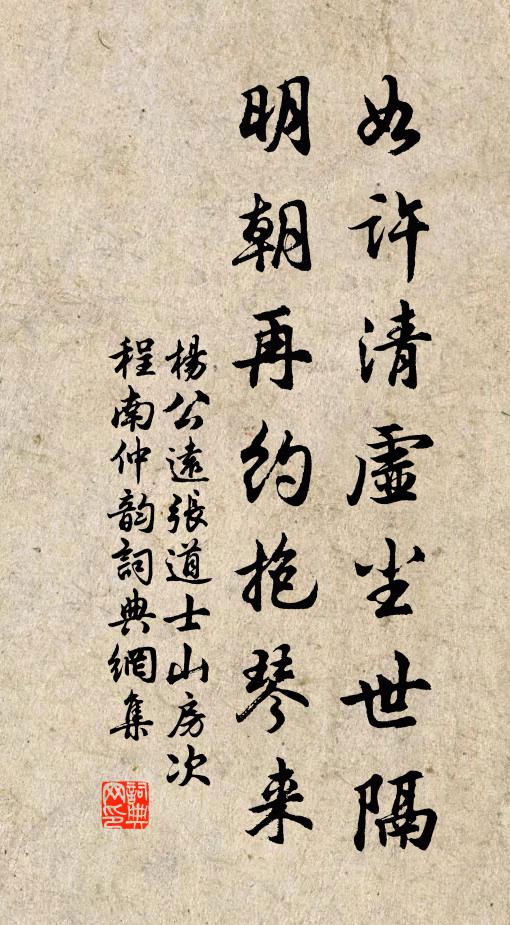 如许清虚尘世隔
明朝再约抱琴来
杨公远张道士山房次
程南仲韵词典网集
词典网印